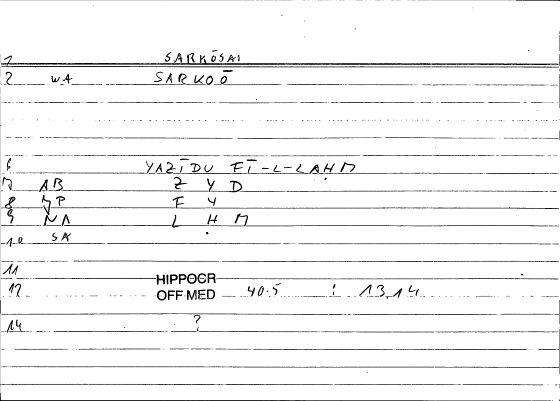 1 SARKŌSAI
2 WA SARKOŌ
6 YAZĪDU FĪ-L-LAḤM
7 AB Z Y D
8 NP F Y
9 NA L Ḥ M
10 SA
11
12 HIPPOCR OFF-MED 40.5 : 13,14
14 ?